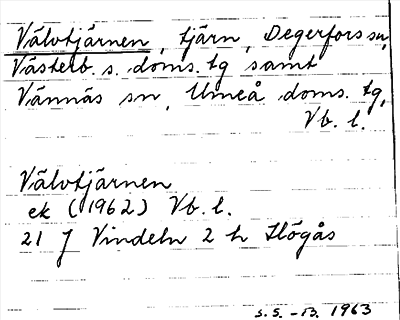 Välvtjärnen, tjärn, Degerfors sn,
Västerb. s. doms. tg samt
Vännäs sn, Umeå doms. tg,
Vb. l.
Välvtjärnen
ek (1962) Vb. l.
21 J Vindeln 2 h Högås
S.S. -13. 1963